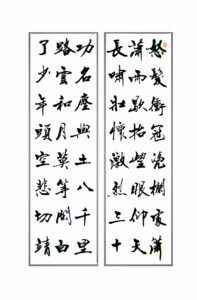 怒髮衝冠凭欄處瀟
瀟雨歇抬望眼仰天
長嘯壯懷激烈三十
功名塵與土八千里
路雲和月莫等閑白
了少年頭空悲切靖